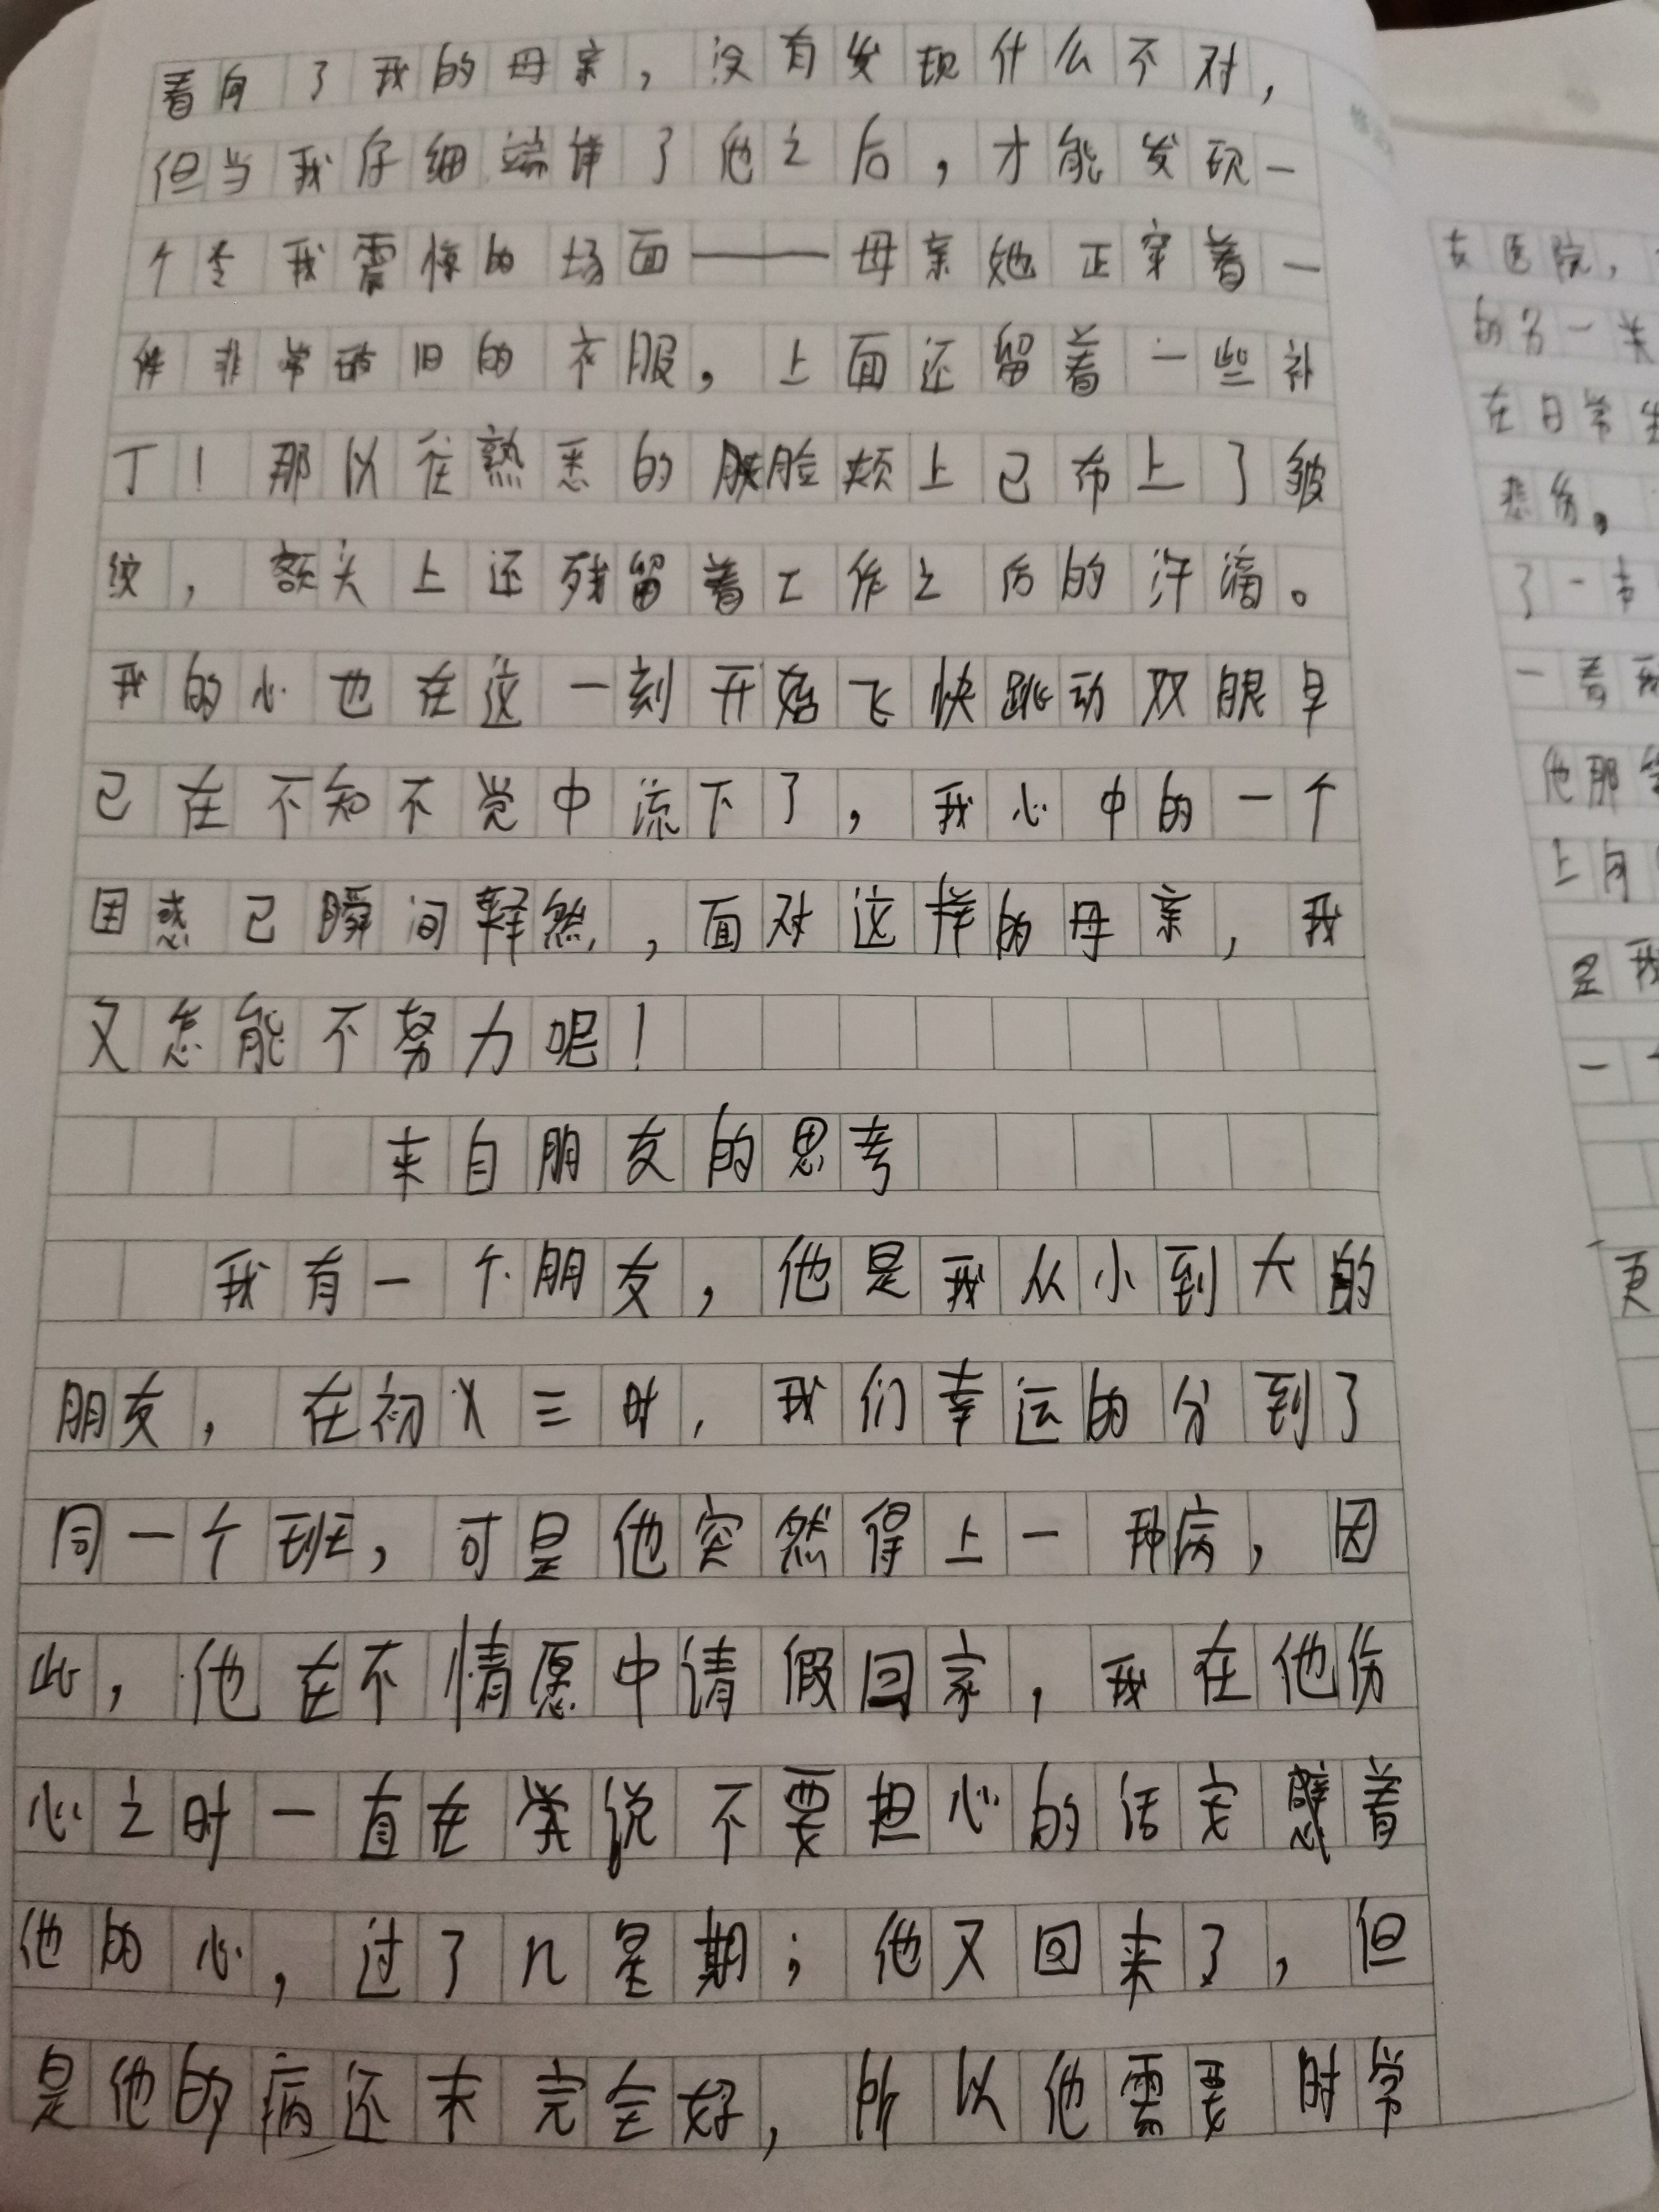 看向了我的母亲，没有发现什么不对，
但当我仔细端详了他之后，才能发现一
个令我震惊的场面——母亲她正穿着一
件非常破旧的衣服，上面还留着一些补
丁！那以往熟悉的脸颊上已布上了皱
纹，额头上还残留着工作之后的汗滴。
我的心也在这一刻开始飞快跳动双眼早
已在不知不觉中流下了，我心中的一个
困惑已瞬间释然，面对这样的母亲，我
又怎能不努力呢！
来自朋友的思考
我有一个朋友，他是我从小到大的
朋友，在初三时，我们幸运的分到了
同一个班，可是他突然得上一种病，因
此，他在不情愿中请假回家，我在他伤
心之时一直在说不要担心的话安慰着
他的心，过了几星期；他又回来了，但
是他的病还未完全好，所以他需要时常
去医院，
的另一
在日常生
悲伤。
了一
一看
他那
上向
是我
一
更